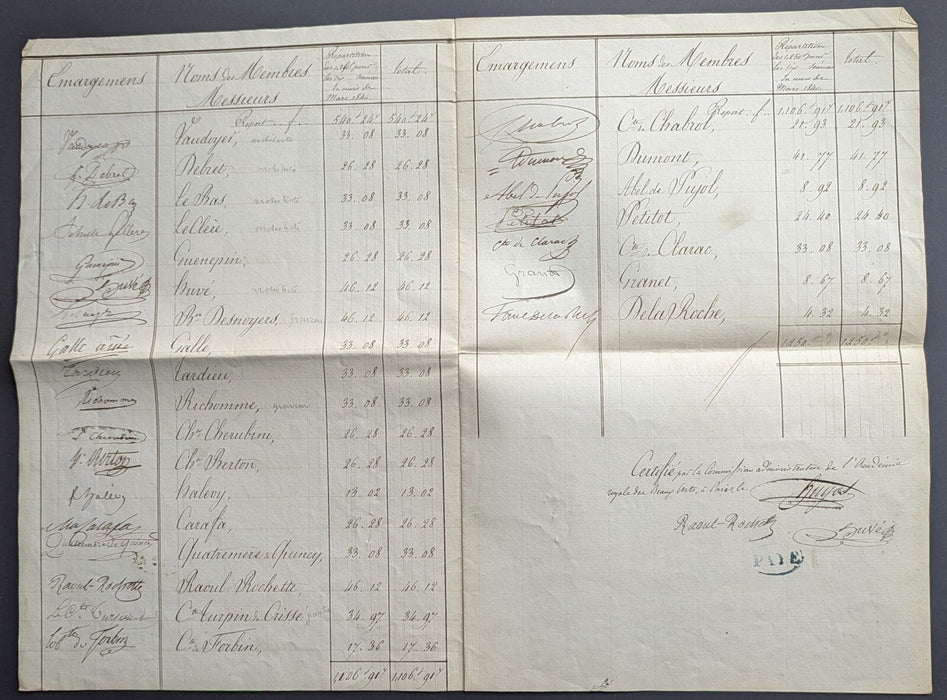 Emargemens Noms des Membres Messieurs Répartition des 1250f pour les six séances du mois de Mars 1840. total.
Report... f. 540.f 14c 540.f 14c
Vaudoyer Vaudoyer, architecte 33.08 33.08
Debret Debret, architecte 26.28 26.28
le Bas, architecte 33.08 33.08
Achille Leclere LeClère, architecte 33.08 33.08
Guenepin Guenepin, 26.28 26.28
Huvé Huvé, architecte 46.12 46.12
Bon Desnoyers, graveur 46.12 46.12
Galle ainé Galle, 33.08 33.08
Tardieu tardieu, 33.08 33.08
Richomme Richomme, graveur 33.08 33.08
L. Cherubini Chr Cherubini, 26.28 26.28
Berton Chr Berton, 26.28 26.28
F Halévy halevy, 13.02 13.02
Carafa Carafa, 26.28 26.28
Quatremère de Quincy Quatremere de Quincy, 33.08 33.08
Raoul-Rochette Raoul-Rochette, 46.12 46.12
Le Cte Turpin Cte turpin de Crissé, 34.97 34.97
Cte de Forbin, 17.36 17.36
1,106.f 91c 1,106.f 91c
Emargemens Noms des Membres Messieurs Répartition des 1250f pour les six séances du mois de Mars 1840. total.
Report.. f. 1,106.f 91c 1,106.f 91c
Chabrol Cte de Chabrol, 21.93 21.93
Dumont Dumont, 41.77 41.77
Abel de Pujol Abel de Pujol, 8.92 8.92
Petitot Petitot, 24.40 24.40
Cte de Clarac Cte de Clarac, 33.08 33.08
Granet Granet, 8.67 8.67
Paul DelaRoche DelaRoche, 4.32 4.32
1250.f 1250.f
Certifié par la Commission administrative de l'Académie
royale des Beaux Arts, à Paris le
Raoul-Rochette Huvé
PAYÉ